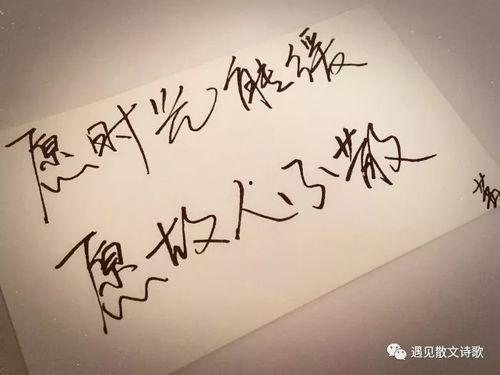 愿时光能缓
愿故人不散
遇见散文诗歌